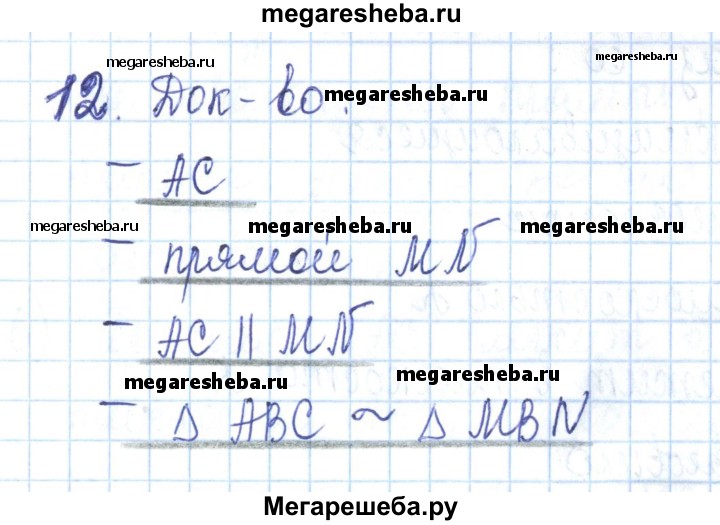 megaresheba.ru
megaresheba.ru
megaresheba.ru
12. Док-во:
megaresheba.ru
- AC
megaresheba.ru
megaresheba.ru
megaresheba.ru
- прямой MN
- AC || MN
megaresheba.ru
megaresheba.ru
- Δ ABC ~ Δ MBN
Мегарешеба.ру